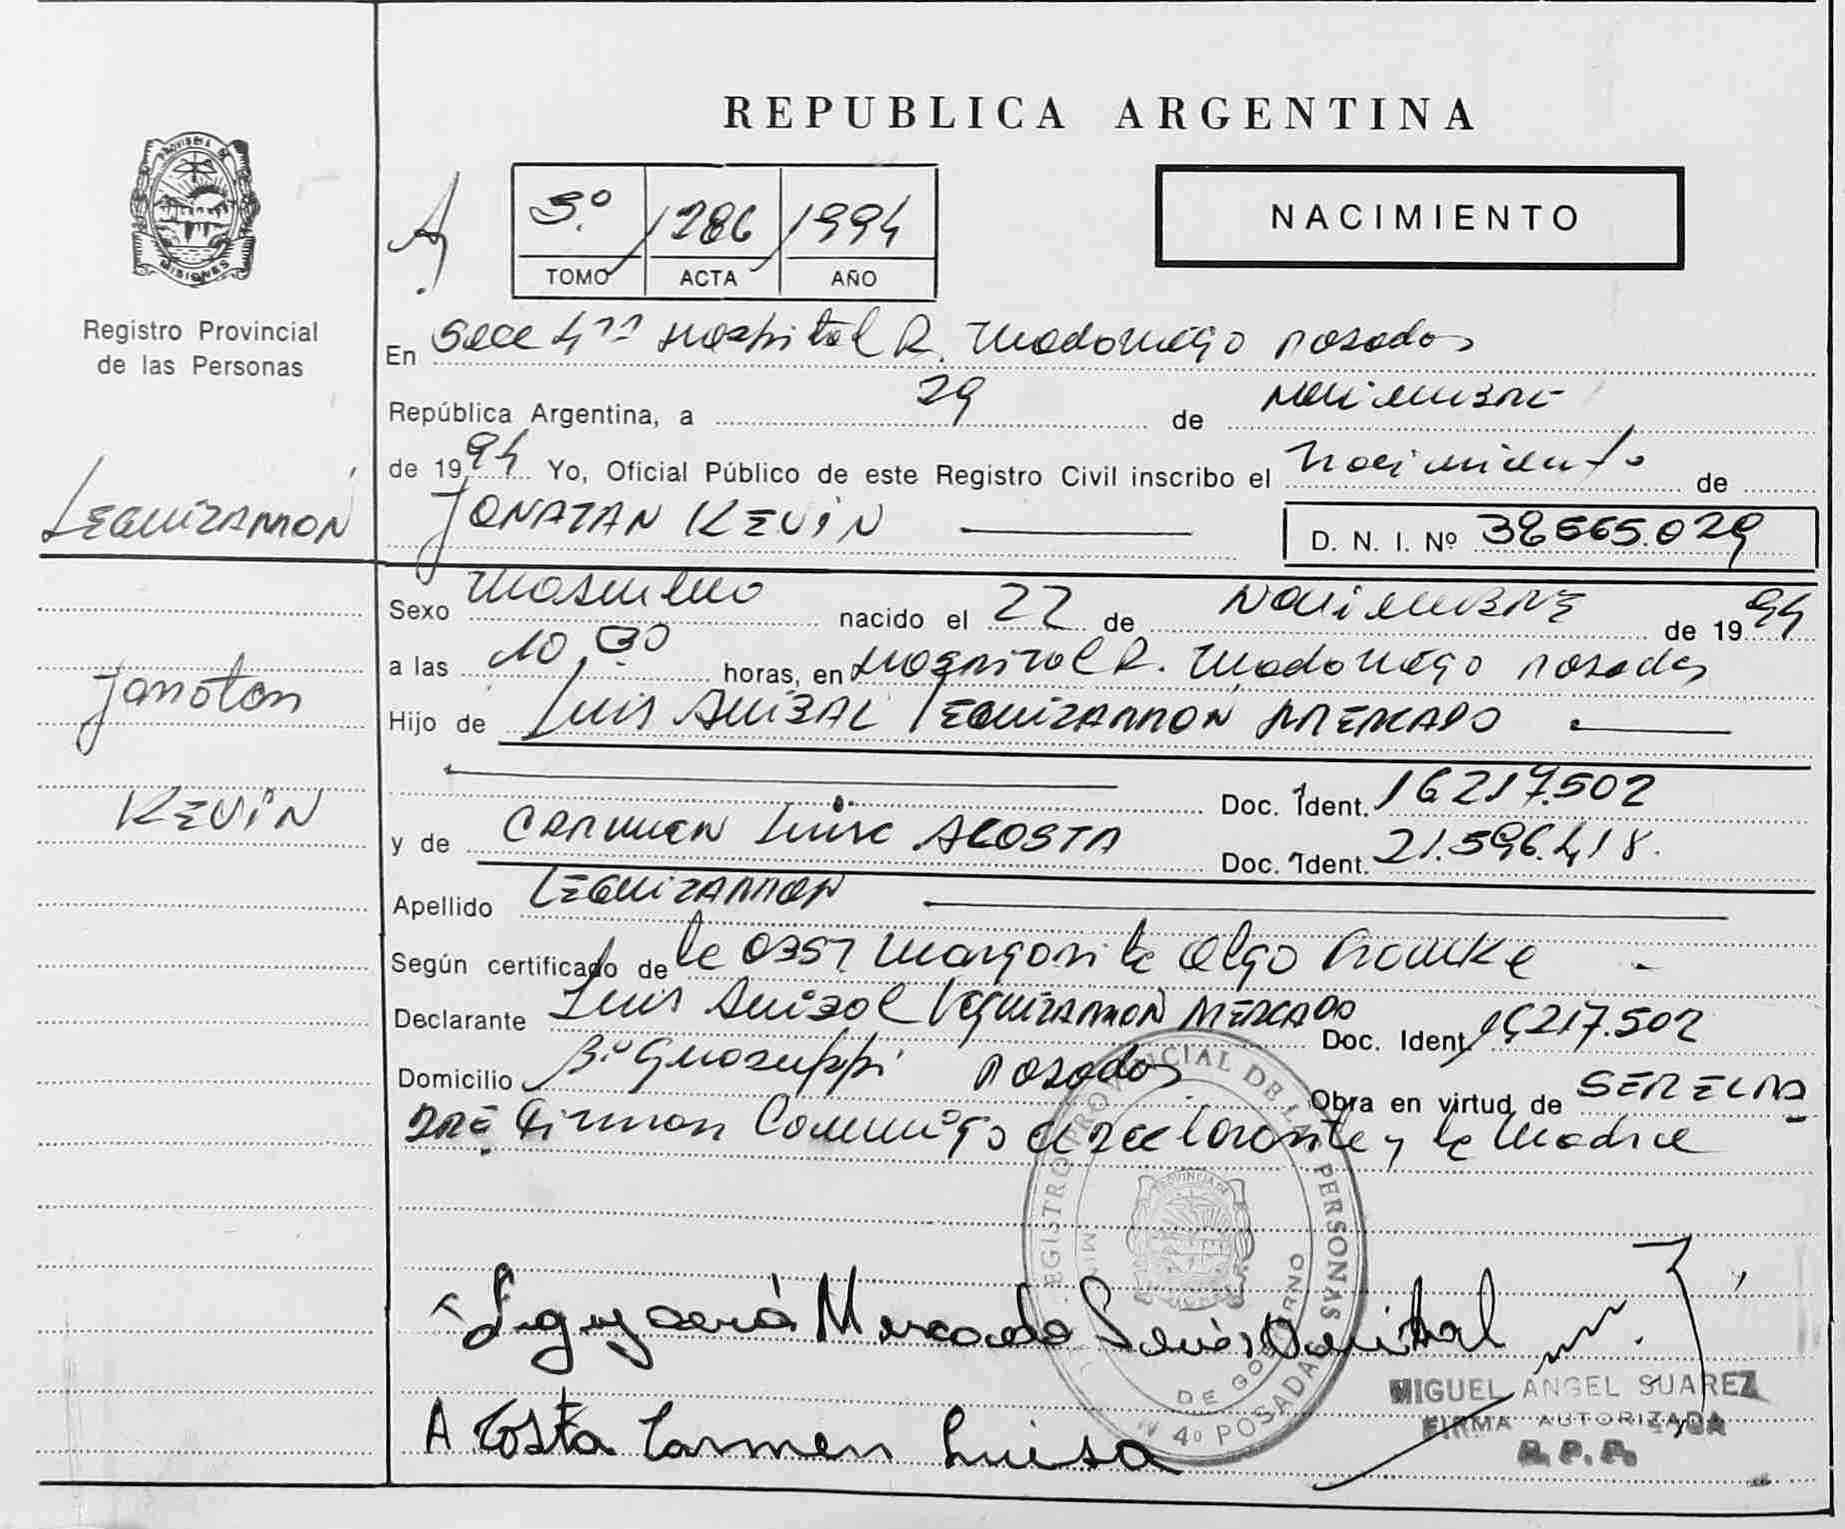 REPUBLICA ARGENTINA
PROVINCIA DE
MISIONES
Registro Provincial
de las Personas
A
5º 1286 1994
TOMO ACTA AÑO
NACIMIENTO
En Secc 4ta Hospital R. Madariaga Posadas
República Argentina, a 29 de Noviembre
de 1994 Yo, Oficial Público de este Registro Civil inscribo el nacimiento de
JONATAN KEVIN
D. N. I. Nº 38.565.029
LEGUIZAMON
Jonatan
KEVIN
Sexo Masculino nacido el 22 de NOVIEMBRE de 1994
a las 10,30 horas, en Hospital R. Madariaga Posadas
Hijo de LUIS ANIBAL LEGUIZAMON MERCADO
Doc. Ident. 16217.502
y de CARMEN Luisa ACOSTA Doc. Ident. 21.596.418.
Apellido LEGUIZAMON
Según certificado de la Obst Margarita Olga
Declarante Luis Anibal Leguizamon MERCADO Doc. Ident. 16217.502
Domicilio Bº Posadas Obra en virtud de SER EL PA
DRE Firman Conmigo el declarante y la Madre
REGISTRO PROVINCIAL DE LAS PERSONAS
PROVINCIA DE
DE GOBIERNO
4º POSADAS
Mercado Luis Anibal
Acosta Carmen Luisa
MIGUEL ANGEL SUAREZ
FIRMA AUTORIZADA
R.P.P.